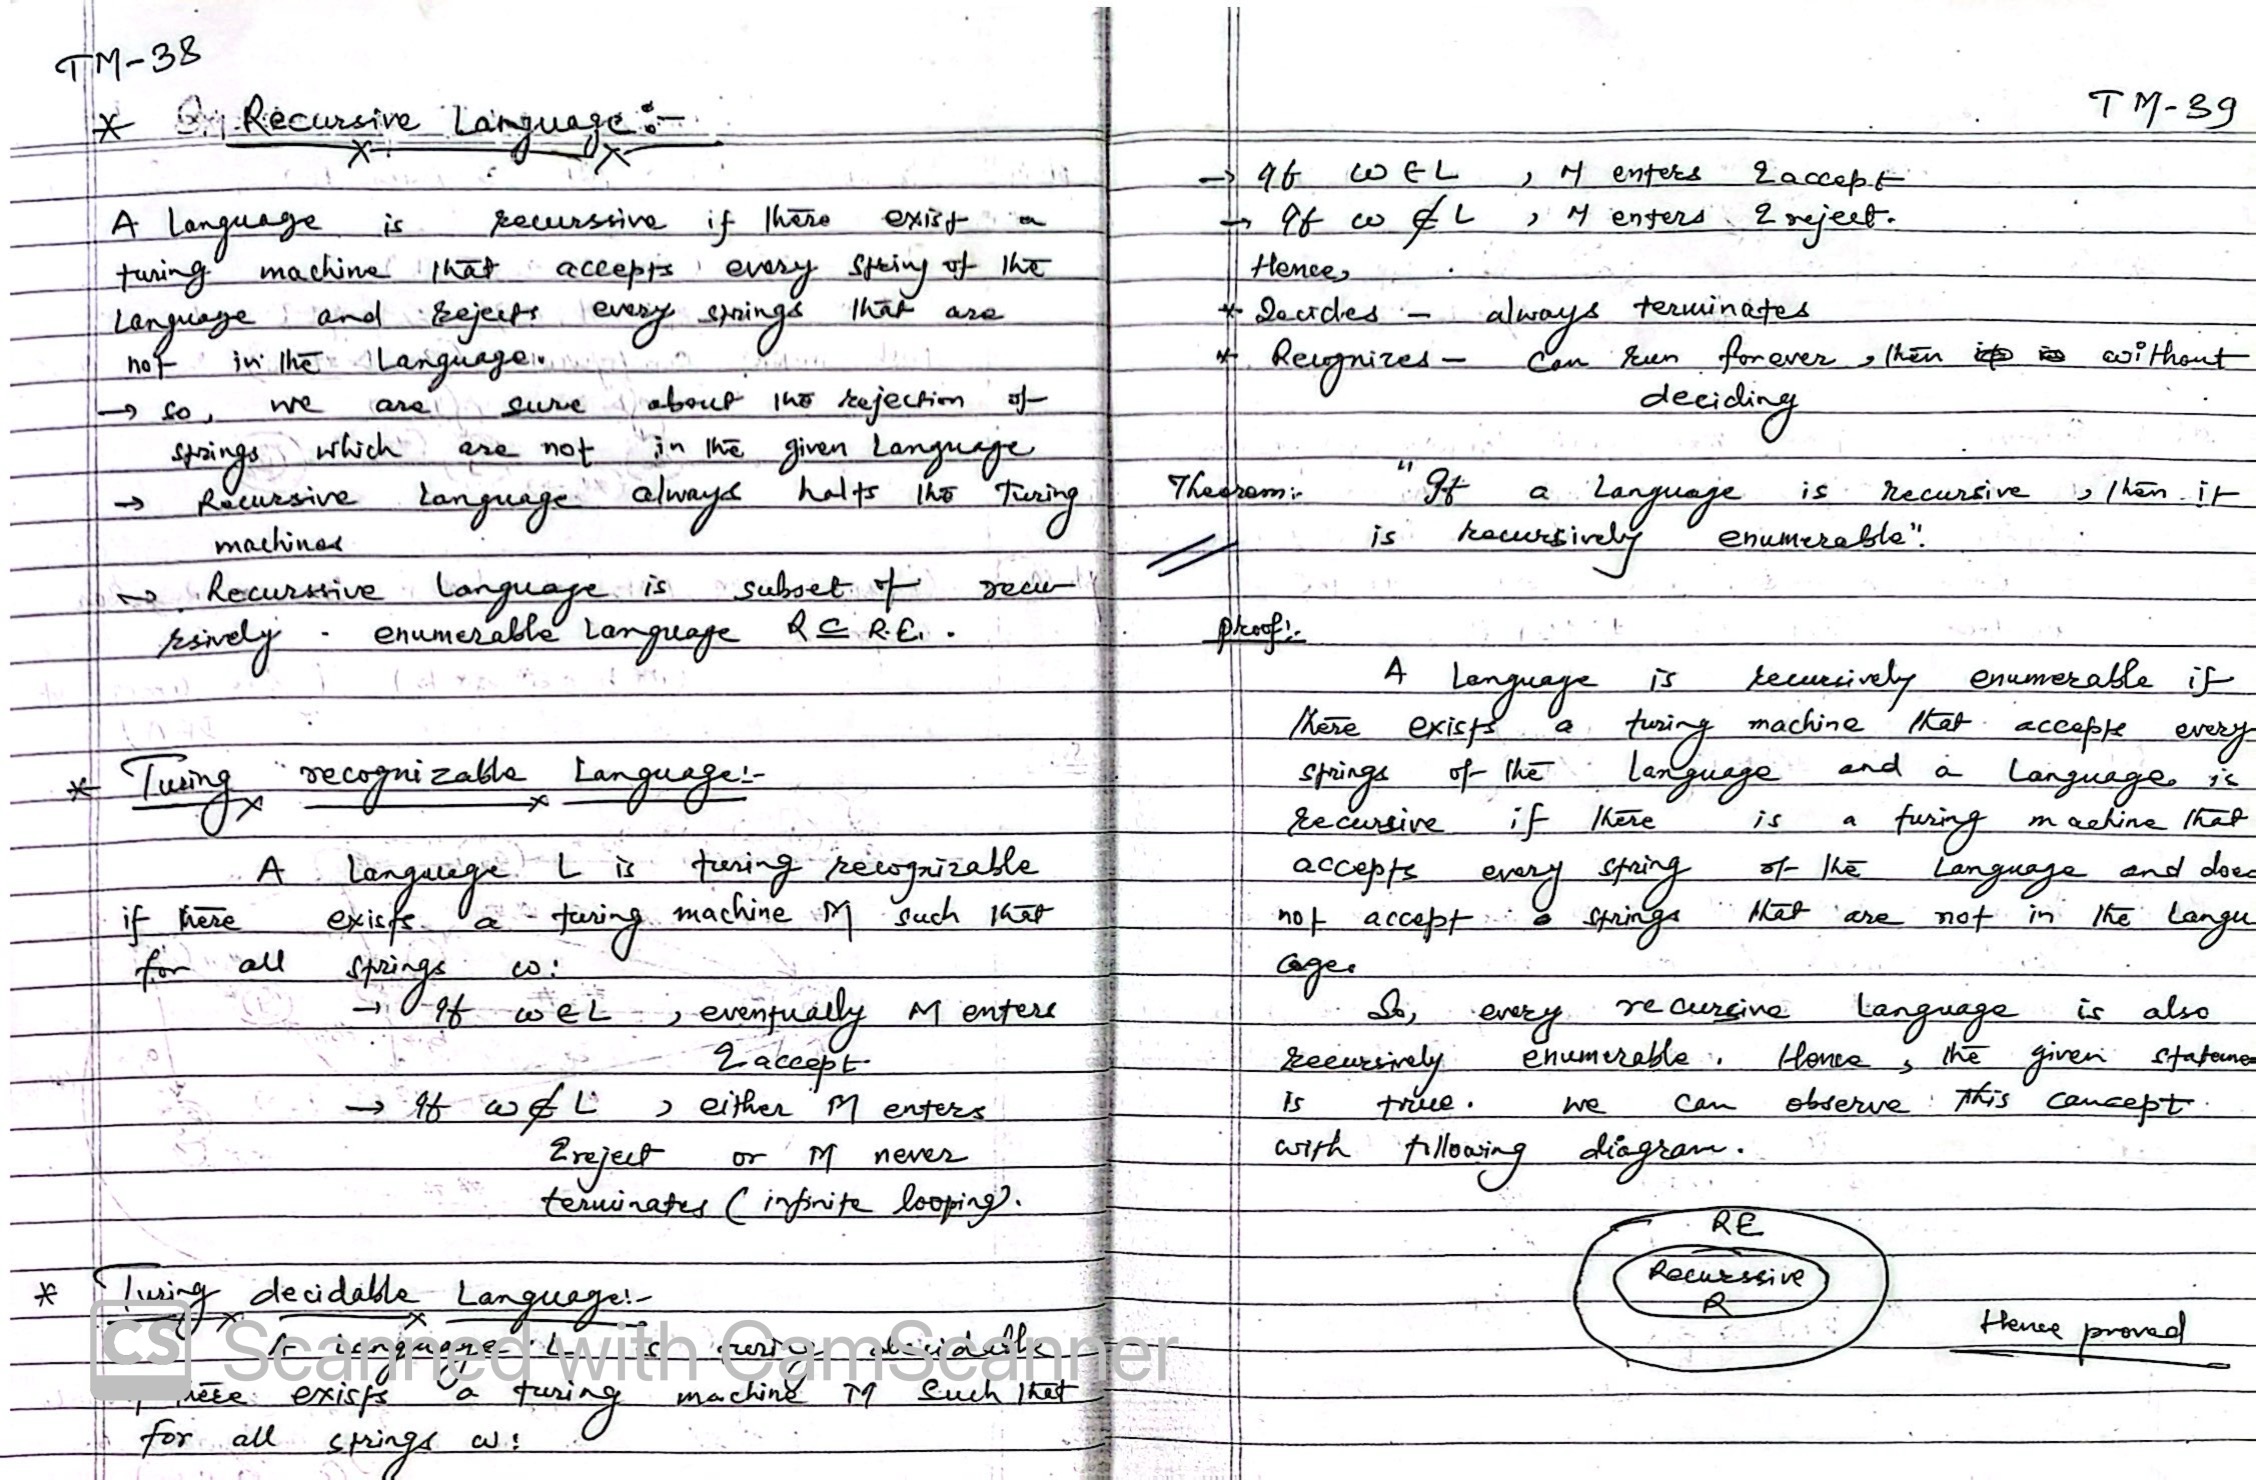 TM-38
* Recursive Language:-
A language is recurssive if there exist a
turing machine that accepts every string of the
language and rejects every strings that are
not in the Language.
→ so, we are sure about the rejection of
strings which are not in the given Language
→ Recursive Language always halts the Turing
machines
→ Recurssive Language is subset of recu
rsively enumerable Language R ⊆ R.E.
* Turing recognizable Language:-
A language L is turing recognizable
if there exists a turing machine M such that
for all strings ω:
→ If ω ∈ L , eventually M enters
q accept
→ If ω ∉ L , either M enters
q reject or M never
terminates (infinite looping).
* Turing decidable Language:-
A language L is turing decidable
there exists a turing machine M such that
for all strings ω:
CS Scanned with CamScanner
TM-39
→ If ω ∈ L , M enters q accept
→ If ω ∉ L , M enters q reject.
Hence,
* Decides - always terminates
* Recognizes - can run forever, then without
deciding
Theorem:- "If a Language is recursive, then it
is recursively enumerable".
proof:-
A Language is recursively enumerable if
there exists a turing machine that accepts every
strings of the Language and a Language is
recursive if there is a turing machine that
accepts every string of the Language and does
not accept strings that are not in the Langu
age.
So, every recursive Language is also
recursively enumerable. Hence, the given stateme
is true. we can observe this concept
with following diagram.
RE
Recurssive
R
Hence proved